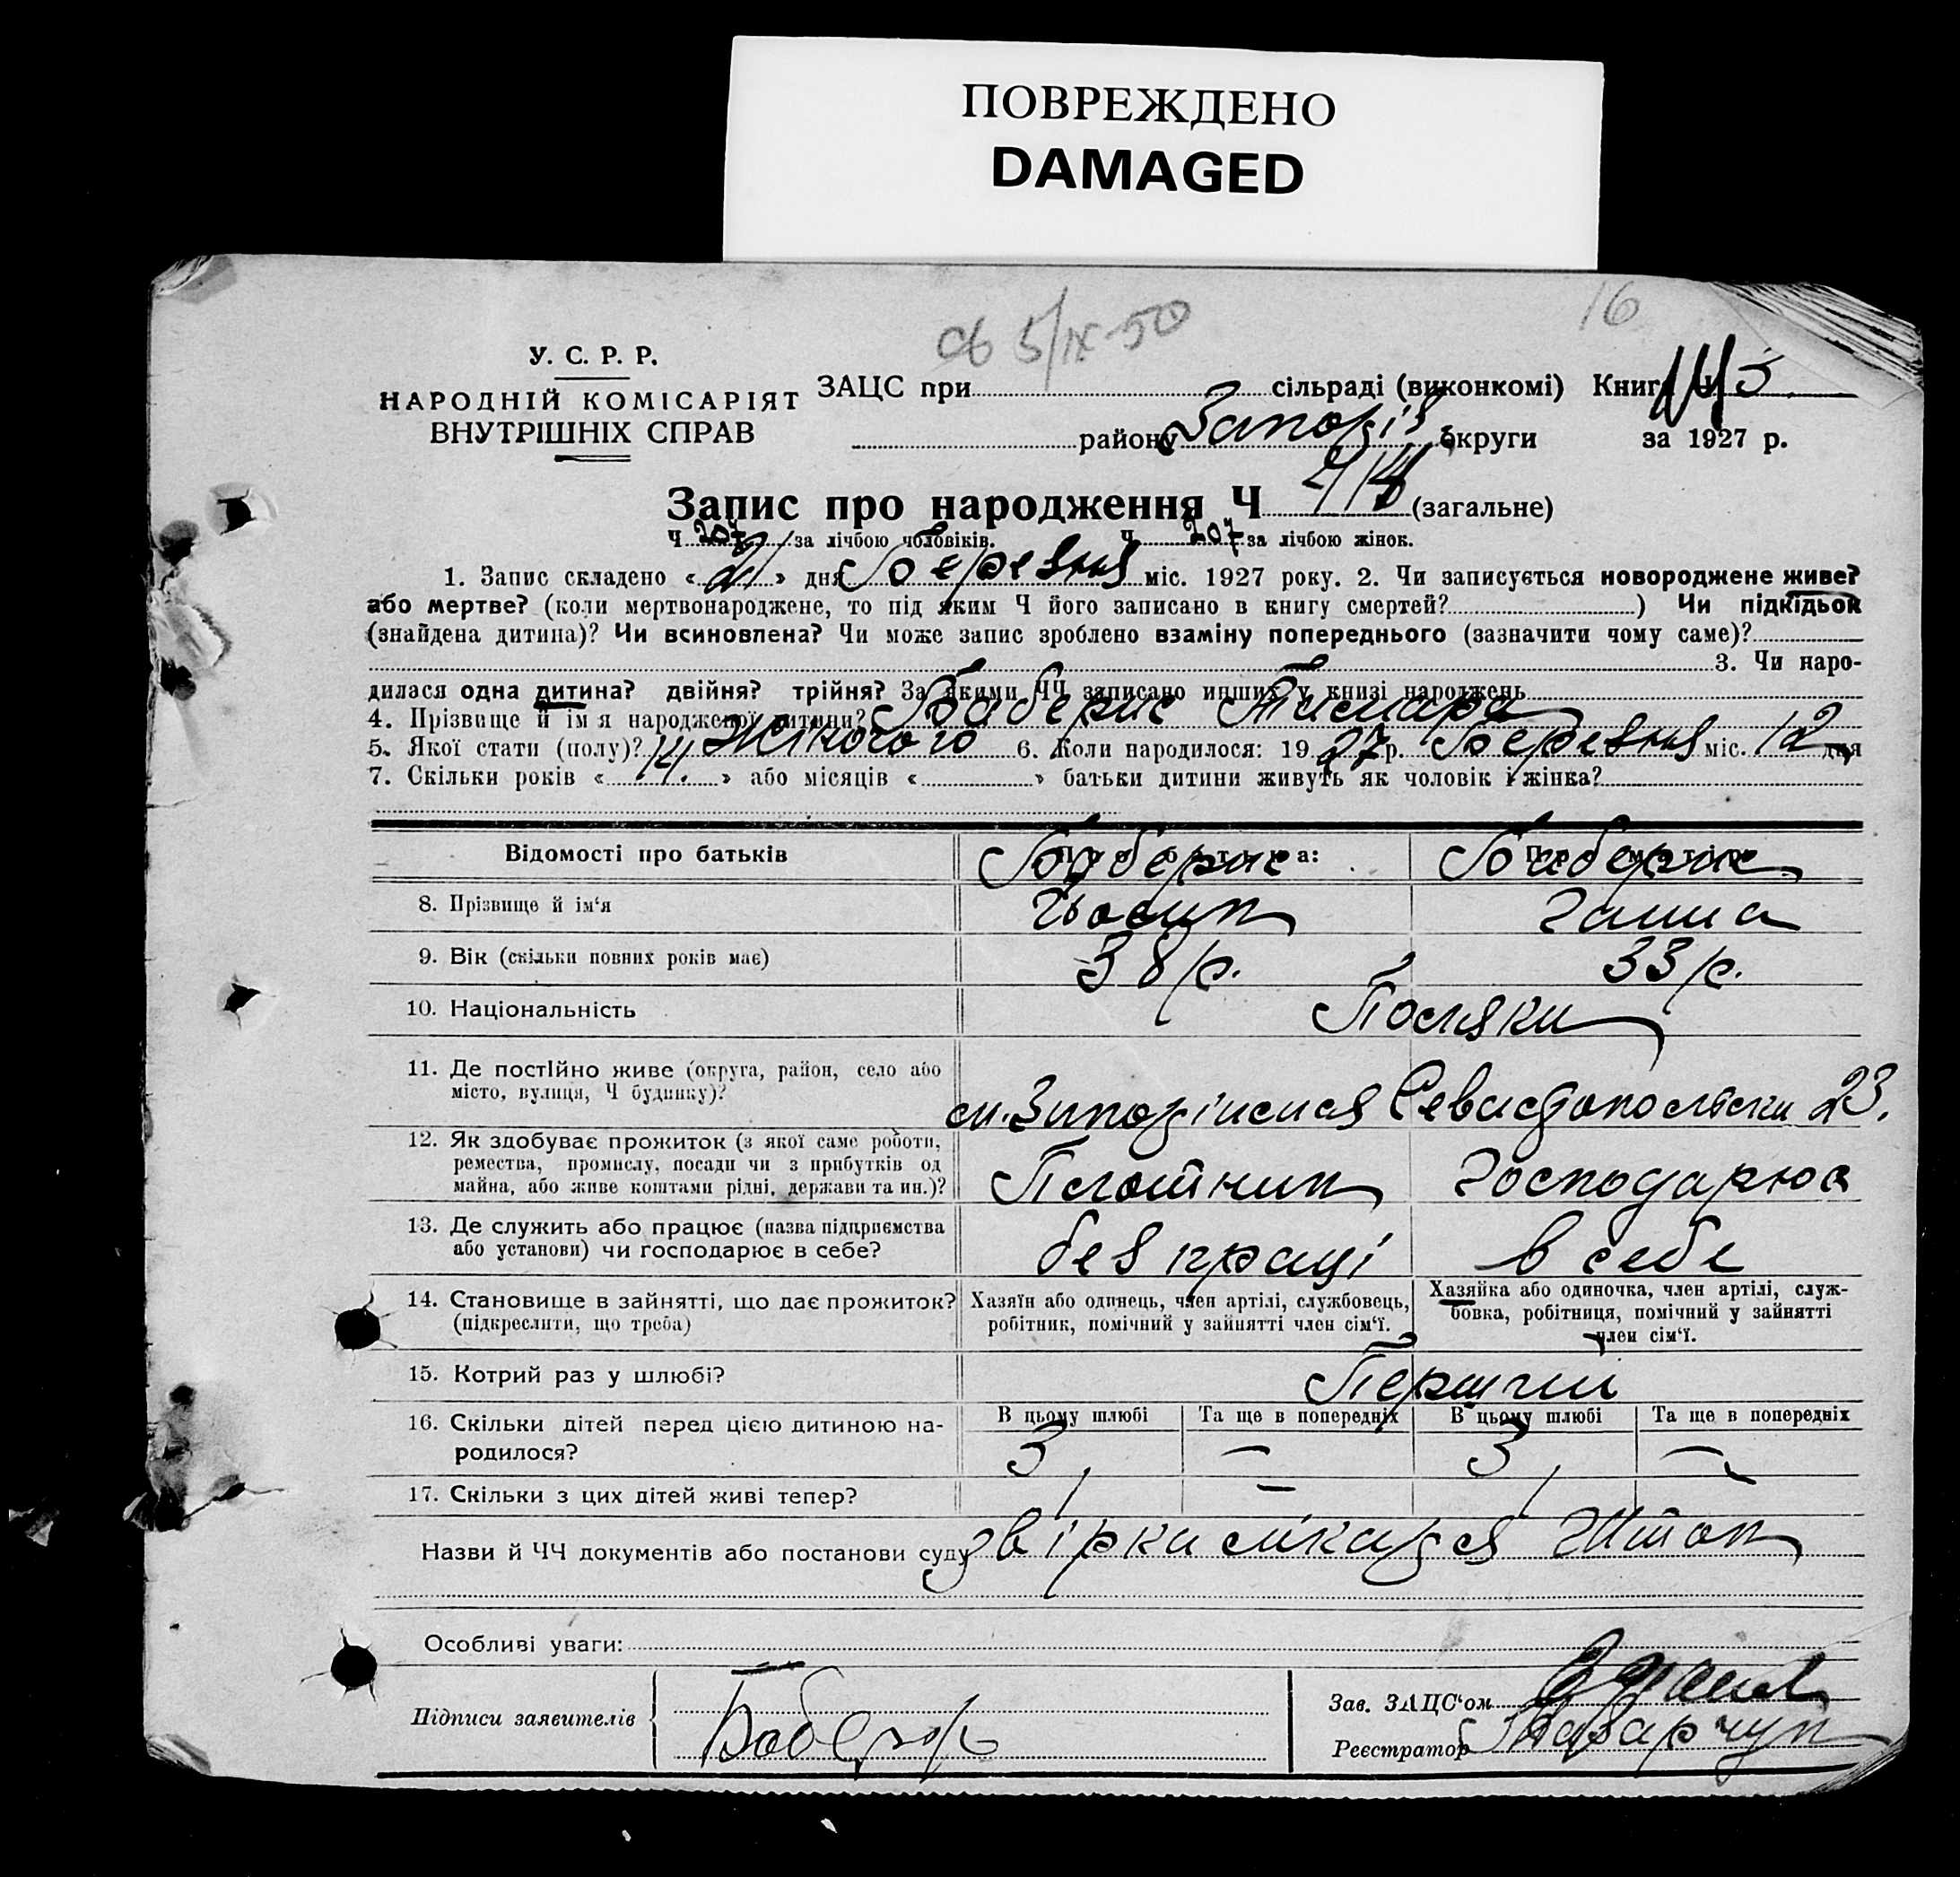 ПОВРЕЖДЕНО
DAMAGED
16
св 5/IX-50
У. С. Р. Р.
НАРОДНІЙ КОМІСАРІЯТ
ВНУТРІШНІХ СПРАВ
ЗАЦС при сільраді (виконкомі) Книга Ч
району Запоріз округи за 1927 р.
Запис про народження Ч 414 (загальне)
Ч 207 за лічбою чоловіків. Ч 207 за лічбою жінок.
1. Запис складено «21» дня Березня міс. 1927 року. 2. Чи записується новороджене живе?
або мертве? (коли мертвонароджене, то під яким Ч його записано в книгу смертей? ) Чи підкідьок
(знайдена дитина)? Чи всиновлена? Чи може запис зроблено взаміну попереднього (зазначити чому саме)?
3. Чи наро-
дилася одна дитина? двійня? трійня? За якими ЧЧ записано инших у книзі народжень
4. Прізвище й ім'я народженої дитини? Баберис Тамара
5. Якої стати (полу)? Жіночого 6. Коли народилося: 1927 р. Березня міс. 12 дня
7. Скільки років «14.» або місяців « » батьки дитини живуть як чоловік і жінка?
Відомості про батьків Про батька: Про матір:
Баберис Баберис
8. Прізвище й ім'я Йосип Ганна
9. Вік (скільки повних років має) 38 р. 33 р.
10. Національність Поляки
11. Де постійно живе (округа, район, село або
місто, вулиця, Ч будинку)? м. Запоріжжя Севастопольска 23.
12. Як здобуває прожиток (з якої саме роботи,
ремества, промислу, посади чи з прибутків од
майна, або живе коштами рідні, держави та ин.)? Плотник Господарює
13. Де служить або працює (назва підприємства
або установи) чи господарює в себе? без праці в себе
14. Становище в зайнятті, що дає прожиток?
(підкреслити, що треба)
Хазяїн або одинець, член артілі, службовець,
робітник, помічний у зайнятті член сім'ї.
Хазяйка або одиночка, член артілі, служ-
бовка, робітниця, помічний у зайнятті
член сім'ї.
15. Котрий раз у шлюбі? Перший
В цьому шлюбі Та ще в попередніх В цьому шлюбі Та ще в попередніх
16. Скільки дітей перед цією дитиною на-
родилося? 3 — 3 —
17. Скільки з цих дітей живі тепер? 1 — 1
Назви й ЧЧ документів або постанови суду звірка лікаря
Особливі уваги:
Підписи заявителів
Зав. ЗАЦС'ом
Реєстратор